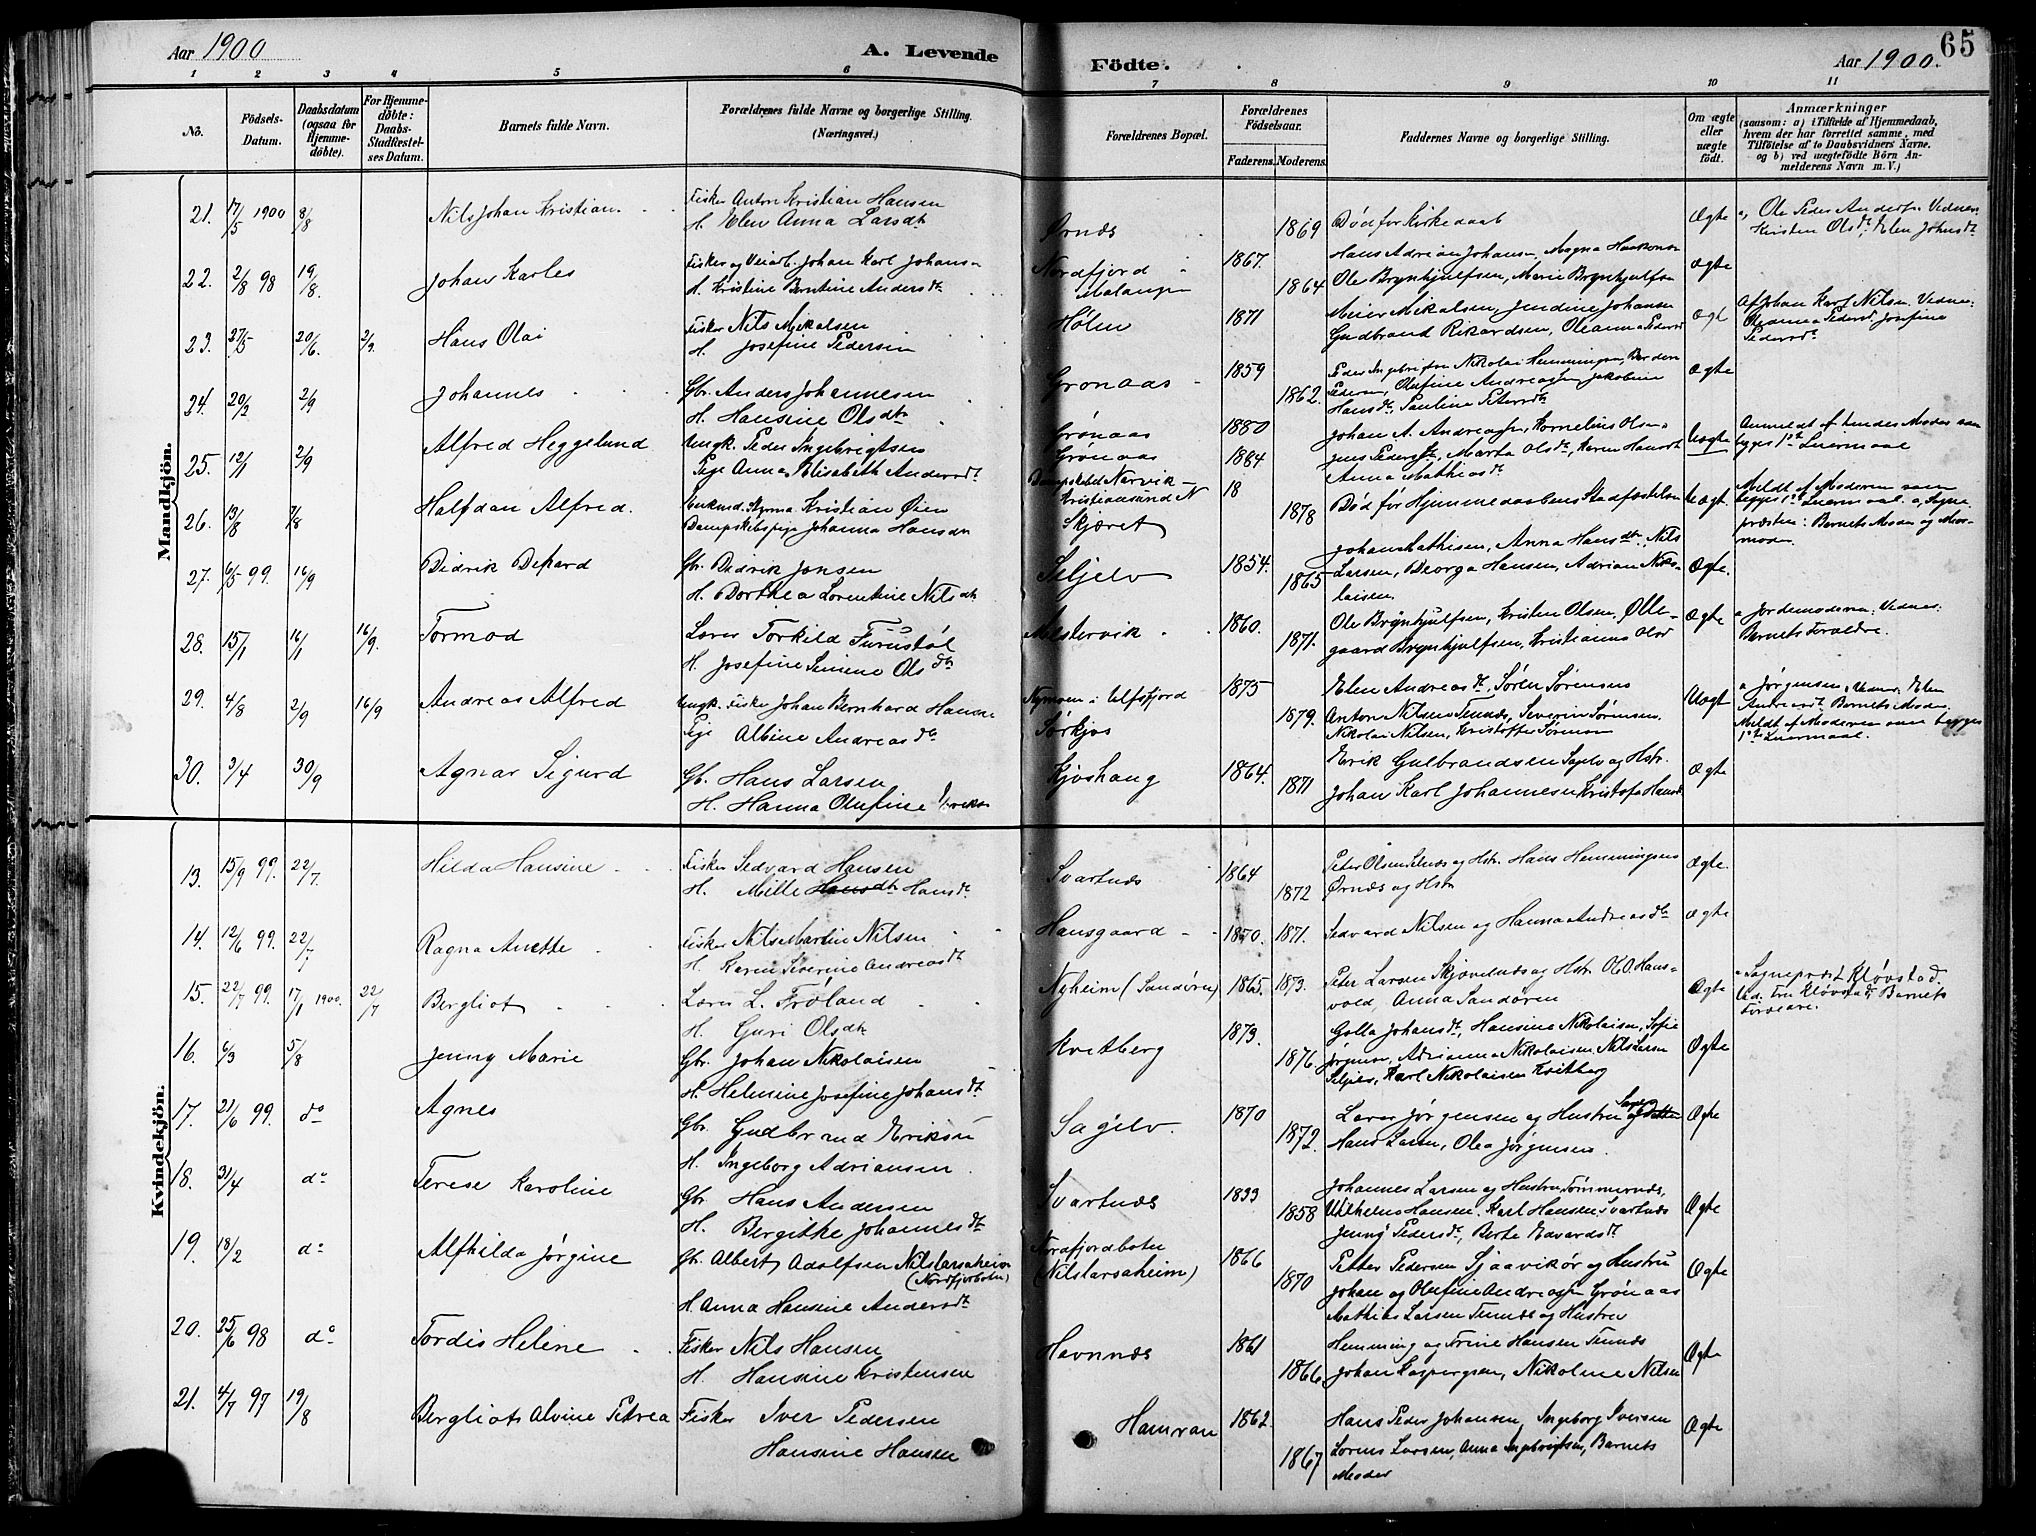 Aar 1900
A. Levende
Födte.
Aar 1900.
65
1 2 3 4 5 6 7 8 9 10 11
No.
Födsels-Datum.
Daabsdatum (ogsaa for Hjemme-döbte).
For Hjemme-döbte: Daabs-Stadfæstel-ses Datum.
Barnets fulde Navn.
Forældrenes fulde Navne og borgerlige Stilling.
(Næringsvei.)
Forældrenes Bopæl.
Forældrenes Födselsaar.
Faderens. Moderens.
Faddernes Navne og borgerlige Stilling.
Om ægte eller uægte födt.
Anmærkninger
(saasom: a) i Tilfælde af Hjemmedaab, hvem der har forrettet samme, med Tilföielse af to Daabsvidners Navne. og b) ved uægtefödte Börn An-melderens Navn m. V.)
Mandkjön.
21. 17/5 1900 8/8 Nils Johan Kristian Fisker Anton Kristian Hansen
H. Elen Anna Larsdtr Ørnæs 1869 Død før Kirkedaab Ægte a, Ole Peder Anders. Vedner:
Kristen Olsdt, Elen Johnsdt
22. 2/8 98 19/8. Johan Karles Fisker og Veiarb. Johan Karl Johans
H. Kristine Berntine Andersdt Nordfjord Malangen 1867. 1864 Hans Adrian Johans, Magna Haakons
Ole Brynhjulfsen, Marie Brynhjulfsn Ægte
23. 27/5 20/6. 2/9. Hans Olai Fisker Nils Mikalsen
H. Josefine Pedersen Holm 1871 Meier Mikalsen, Jendine Johansen
Gudbrand Rikardsen, Oleanna Pedersd Ægt af Johan Karl Nilsen. Vedne:
Oleanna Pedersd. Josefine
Pedersdt.
24. 20/2 2/9 Johannes Gbr. Anders Johannesen
H. Hansine Olsdtr Grønaas 1859 1862. Peder Ingebrigtsn Nikolai Hemmingsen,
Pedersen, Olufine Andreassn, Jakobine
Hansdt, Pauline Petersdt Ægte
25. 12/1 2/9 Alfred Heggelund Ungk. Peder Ingebrigtsen
Pige Anna Elisabeth Andersdt Grønaas
Grønaas 1880 1884 Johan A. Andreassn, Kornelius Olsen
Jens Pedersn, Marta Olsdt, Karen Hansdt
Anna Mathiasdt Uægte Anmeldt af hendes Moder som
begges 1ste Leiermaal
26. 13/8 7/8 Halfdan Alfred. Styrm. Kristian Øien
Dampskibspige Johanna Hansdtr Dampskibet Narvik
Kristiansund N
Skjæret 18 1878 Død før Hjemmedaabens Stadfæstelse Uægt. Meldt af Moderen som
begges 1ste Leiermaal. a, Sogne
præsten: Barnets Moder og Mor-
moder.
27. 6/5 99. 16/9 Didrik Dekard Gbr. Didrik Jensen
H. Dorthea Lorentine Nilsdtr Seljelv 1854. 1865 Johan Mathisen, Anna Hansdtr, Nils
Larsen, Georga Hansen, Adrian Niko-
laisen. Ægte.
28. 15/1 16/1 16/9. Tormod Lærer Torkild Furustøl
H. Josefine Olsdtr Mestervik 1860. 1871. Ole Brynhjulfsen, Kristen Olsen, Ølle-
gaard Brynhjulfsen, Kristianna Olsd Ægte a Jordemoderen: Vednes:
Barnets Forældre.
29. 4/8 2/9 16/9 Andreas Alfred Ungk. Fisker Johan Bernhard Hansen
Pige Albine Andreasdtr Nymoen i Ulfsfjord
Sørkjos 1875 1879. Elen Andreasdt, Søren Sørensens
Anton Nilsen Tennæs, Severin Sørensen,
Nikolai Nilsen, Kristoffer Sørensen Uægt a Jørgensen, Vedner: Elen
Andreasdt Barnets Moder.
Meldt af Moderen som begges
1ste Leiermaal.
30. 3/4 30/9 Agnar Sigurd Gb. Hans Larsen
H. Hanna Olufine Eriksen Kjoshaug 1864. 1871 Erik Gulbrandsen Sagelv og Hstr.
Johan Karl Johannesen Kristofa Hansd Ægte
Kvindekjön.
13. 15/9 99. 22/7. Hilda Hansine Fisker Sedvard Hansen
H. Mille Hansdtr Hansdt Svartnæs 1864 1872 Peter Olsen Selnæs og Hstr. Hans Hemmingsens
Ørnæs og Hstr Ægte.
14. 12/6 99. 22/7 Ragna Anette Fisker Nils Martin Nilsen
H. Karen Severine Andreasdt Hansgaard 1870. 1871. Sedvard Nilsen og Hanna Andreasdtr Ægte
15. 22/7 99. 17/1 1900. 22/7 Bergliot Lærer L. Frøland
H. Guri Olsdtr Nyheim (Sandøren) 1865. 1873. Peter Larsen Skjævelnæs og Hstr. Ol. O. Hans-
vold, Anna Sandøren Ægte a Sognepræst Kløvstad.
Vid. Fru Kløvstad, Barnets
Forældre.
16. 6/3 5/8 Jenny Marie Gbr. Johan Nikolaisen
H. Helmine Josefine Johansdt Kvitberg 1873. 1876 Golla Johansdt, Hansine Nikolaisen, Sofie
Jørgensen, Adrianna Nikolaisen, Nils Larsen
Seljelv, Karl Nikolaisen Kvitberg Ægte
17. 21/6 99. do Agnes Gbr. Gudbrand Eriksen
H. Ingeborg Adriansen Sagelv. 1870 1872. Laver Jørgensen og Hustru Sagelv
Hans Larsen, Olea Jørgensens Ægte
18. 31/4 do Terese Karoline Gbr Hans Andersen
H. Bergitke Johannesdt Svartnæs 1833 1858 Johannes Larsen og Hustru Tømmernæs,
Vilhelms Hansen. Karl Hansen Svartnæs
Jenny Pedersdt, Berte Edvardsdt Ægte
19. 18/2 do Alfhilda Jørgine Gbr. Albert Adolfsen Nilslarsaheim
(Nordfjorbotn)
H. Anna Hansine Andersdt Nordfjordbotn
(Nilslarsaheim) 1866 1870 Petter Pedersen Sjaavikør og Hustru
Johan og Olufine Andreassn Grønaas
Mathias Larsen Tennæs og Hustru Ægte
20. 25/6 98 do Tordis Helene Fisker Nils Hansen
H. Hansine Kristensen Havnnæs 1861 1866 Hemming og Trine Hansen Tennæs
Johan Kaspersen, Nikoline Nilsen Ægte
21. 4/7 97 19/8 Bergliot Alvine Petrea Fisker Iver Pedersen
Hansine Hansen Hamran 1862 1867 Hans Peder Johansen, Ingeborg Iversen
Lorens Larsen, Anna Ingebrigtsn, Barnets
Moder Ægte